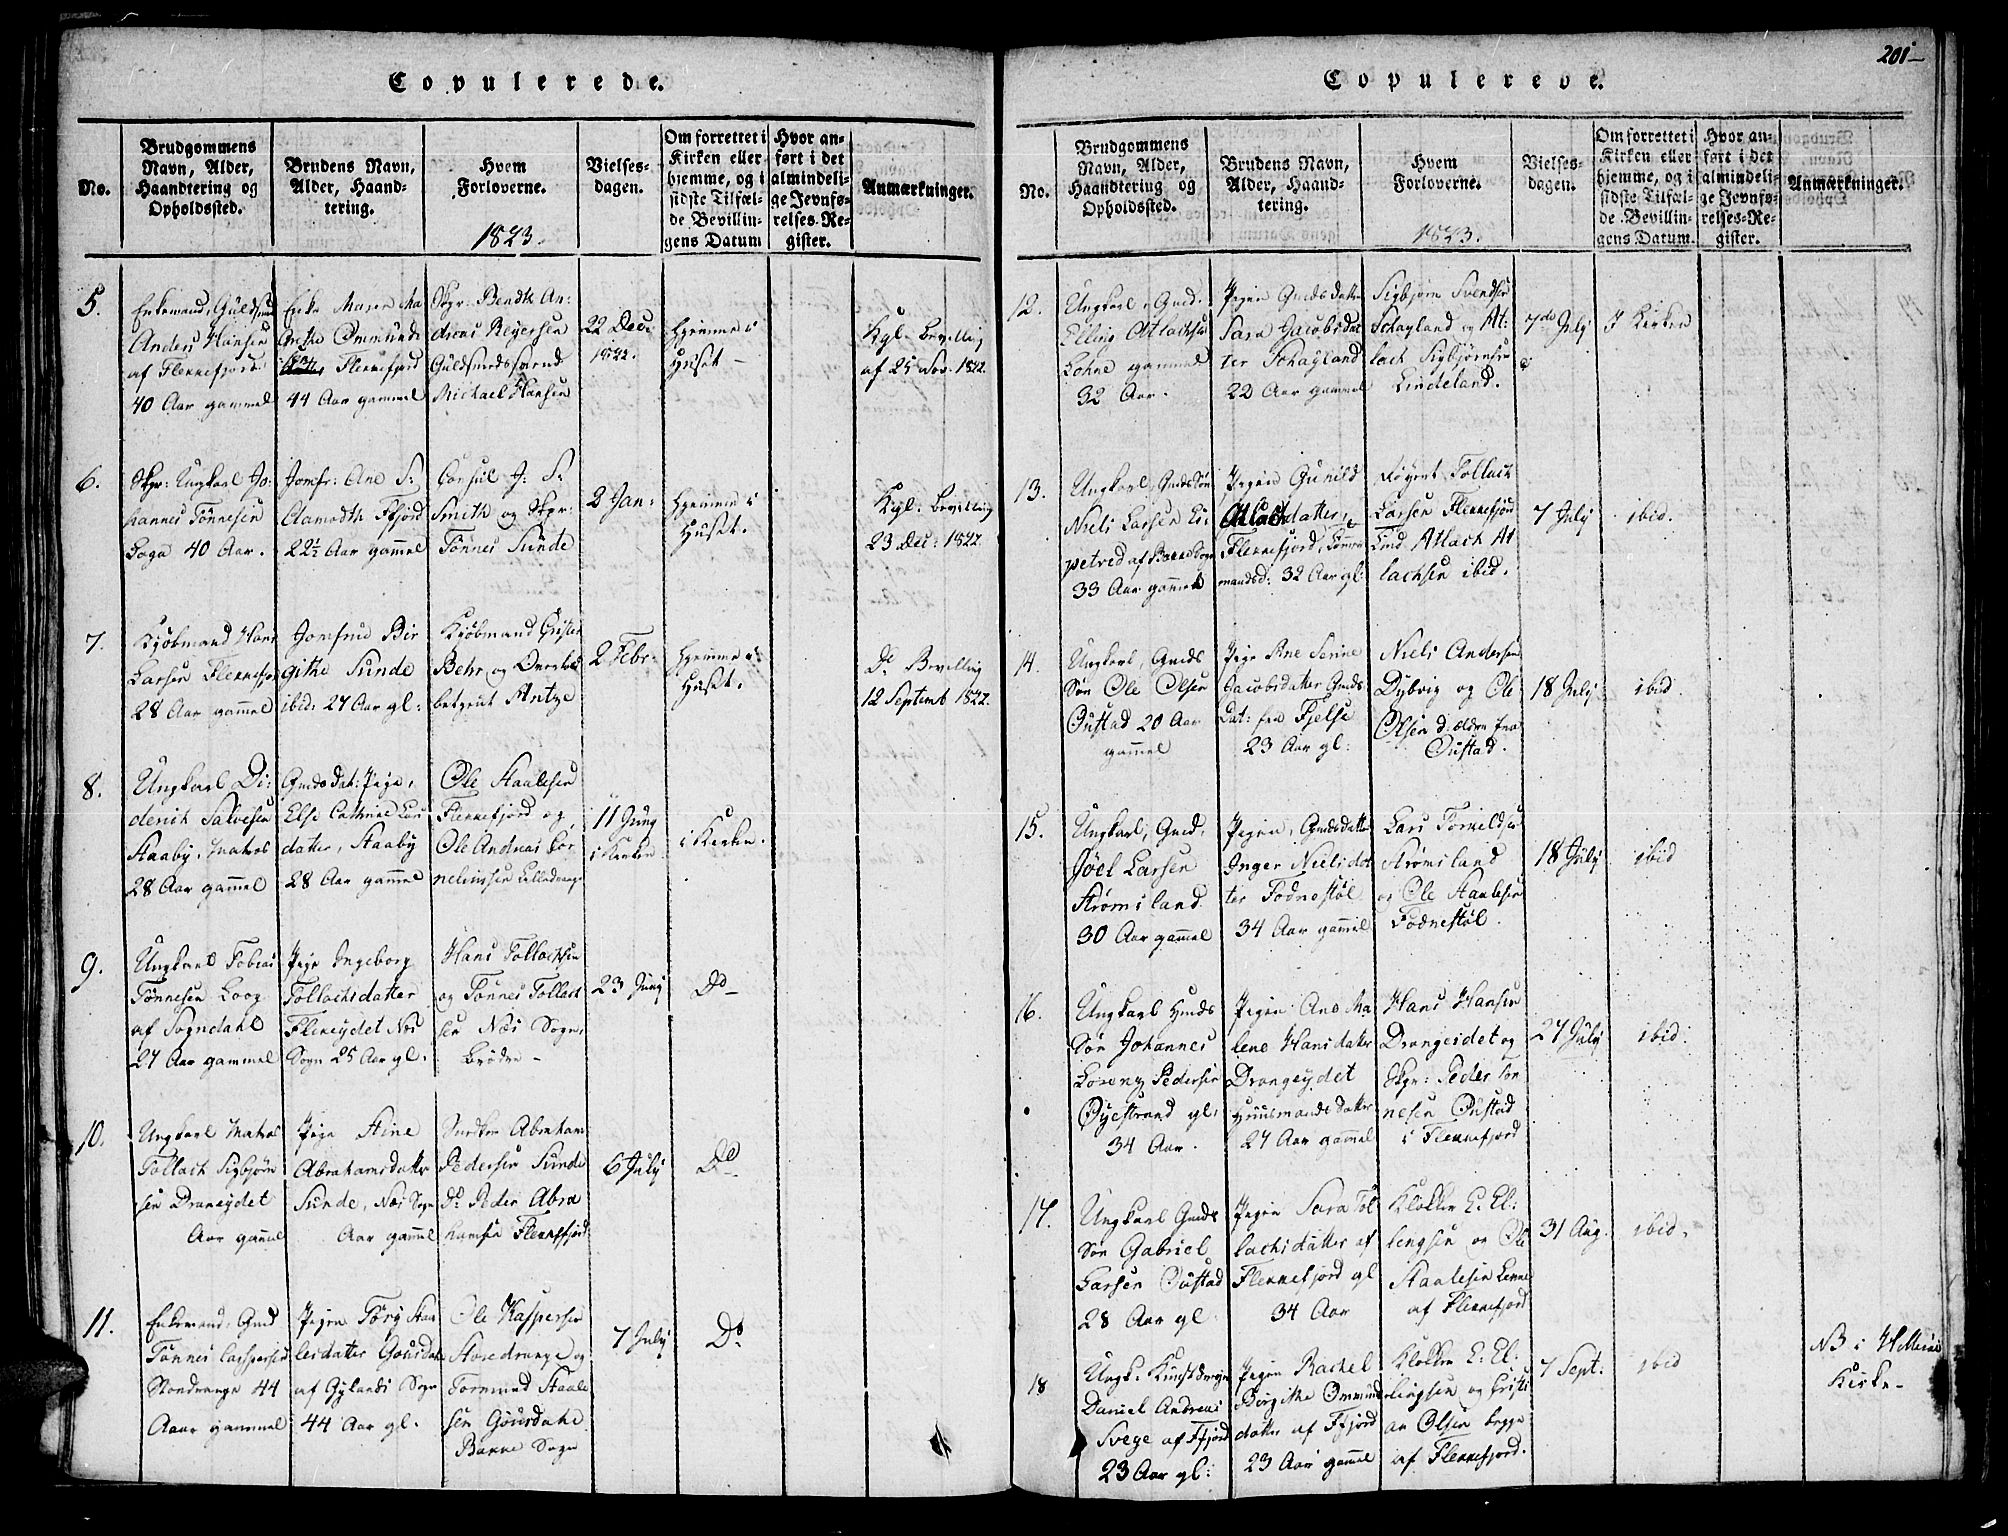 Copulerede.
No.
Brudgommens
Navn, Alder,
Haandtering og
Opholdssted.
Brudens Navn,
Alder, Haand-
tering.
Hvem
Forloverne.
1823.
Vielses-
dagen.
Om forrettet i
Kirken eller
hjemme, og i
sidste Tilfæl-
de Bevillin-
gens Datum
Hvor an-
ført i det
almindeli-
ge Jevnfø-
relses-Re-
gister.
Anmærkninger.
5.
Enkemand, Guldsmed
Anders Hansen
af Flekkefjord
40 Aar gammel
Enke Maren Ma
grethe Ommunds
Flekkefjord
44 Aar gammel
Skpr: Bendth An:
dreas Reyersen
Guldsmedsvend
Michael Hansen
22 Dec:
1822.
Hjemme i
Huset –
Kgl. Bevilling
af 25 Nov. 1822.
6.
Skpr: Ungkarl Jo:
hannes Tönnesen
Loga 40 Aar.
Jomfr: Ane S:
Clamodth Ffjord
22½ Aar gammel
Consul J: S:
Smith og Skpr:
Tönnes Sunde
2 Jan:
Hjemme i
Huset.
Kgl: Bevilling
23 Dec: 1822.
7.
Kjöbmand Hans
Larsen Flekkefjor
28 Aar gammel
Jomfrue Bir
githe Sunde
ibid: 27 Aar gl:
Kjöbmand Christen
Behr og Overtold
betjent Antze
2 Febr:
Hjemme i
Huset.
Do Bevilling
12 Septemb 1822.
8.
Ungkarl Di:
derich Salvesen
Staaby, Matros
28 Aar gammel
Gmds dat: Pige,
Else Cathrine Lars
datter, Staaby
28 Aar gammel
Ole Staalesen
Flekkefjord og
Ole Andreas Cor
neliussen Lilledrange
11 Juny
i Kirken
i Kirken.
9.
Ungkarl Tobias
Tönnesen Loog
af Sogndahl
27 Aar gammel
Pige Ingeborg
Tollachsdatter
Flikeydet Nes
Sogn 25 Aar gl.
Hans Tollachsen
og Tönnes Tollach
sen Næs Sogn,
Brödre –
23 Juny
Do –
10.
Ungkarl Matros
Tollach Sigbjörn
sen Drangeydet
Aar gammel
Pige Stine
Abrahamsdatter
Sunde, Næs Sogn
Aar gammel
Snedker Abraham
Pedersen Sunde
Do Peder Abra
hamsen Flekkefjord
6 July
Do
11.
Enkemand, Gmd
Tönnes Caspersen
Stordrange 44
Aar gammel
Pigen Töry Staa
lesdatter Gousdal
af Gylands Sogn
44 Aar gl.
Ole Kaspersen
Storedrange og
Tormund Staale
sen Gousdahl
Bakke Sogn
7 July
Do
201
Copulerede.
No.
Brudgommens
Navn, Alder,
Haandtering og
Opholdssted.
Brudens Navn,
Alder, Haand-
tering.
Hvem
Forloverne.
1823.
Vielses-
dagen.
Om forrettet i
Kirken eller
hjemme, og i
sidste Tilfæl-
de Bevillin-
gens Datum.
Hvor an-
ført i det
almindeli-
ge Jevnfø-
relses-Re-
gister.
Anmærkninger.
12.
Ungkarl, Gmd.
Elling Atlachsen
Lohne gammel
32 Aar.
Pigen Gmds datter
Sara Jacobsdat
ter Schagland
22 Aar gammel
Sigbjörn Svendsen
Schagland og At:
lach Sigbjörnsen
Lindeland.
7de July
I Kirken
13.
Ungkarl, Gmds Sön
Niels Larsen Li:
petved af Bakke Sogn
33 Aar gammel
Pigen Gunild
Atlachsdatter,
Flekkefjord, Tömmer
mandsd: 32 Aar gl:
Tollach
Larsen Flekkefjord
Tmd Atlach At
lachsen ibid.
7 July
ibid.
14.
Ungkarl, Gmds
Sön Ole Olsen
Oustad 20 Aar
gammel
Pige Ane Serine
Jacobsdatter Gmds
Dat: fra Fjelse
23 Aar gl:
Niels Andersen
Dybvig og Ole
Olsen d: ældre fra
Oustad.
18 July
ibid.
15.
Ungkarl, Gmd,
Joel Larsen
Strömsland
30 Aar gammel
Pigen, Gmdsdatter
Inger Nielsdat
ter Fodnestöl
34 Aar gammel
Lars Torkildsen
Strömsland
og Ole Staalesen
Fodnestöl.
18 July
ibid
16.
Ungkarl Hmds
Sön Johannes
Lorenz Pedersen
Öyestrand gl:
34 Aar.
Pigen Ane Ma
lene Hansdatter
Drangeydet
Huusmands datter
27 Aar gammel
Hans Hansen
Drangeidet og
Skpr: Peder Tön
nesen Oustad
i Flekkefjord
27 July
ibid.
17.
Ungkarl Gmds
Sön Gabriel
Larsen Oustad
28 Aar gl
Pigen Sara Tol
lachsdatter af
Flekkefjord gl
34 Aar
Klokker E. El:
lingsen og Ole
Staalesen
af Flekkefjord
31 Aug.
ibid.
18
Ungk. Kunstdreyer
Daniel Andreas
Svege af Ffjord
23 Aar gl:
Pigen Rachel
Birgithe Ommunds
datter af Ffjord
23 Aar gammel
Klokker E: El:
lingsen og Christi
an Olsen begge
af Flekkefjord.
7 Sept:
ibid
NB i
Kirke –